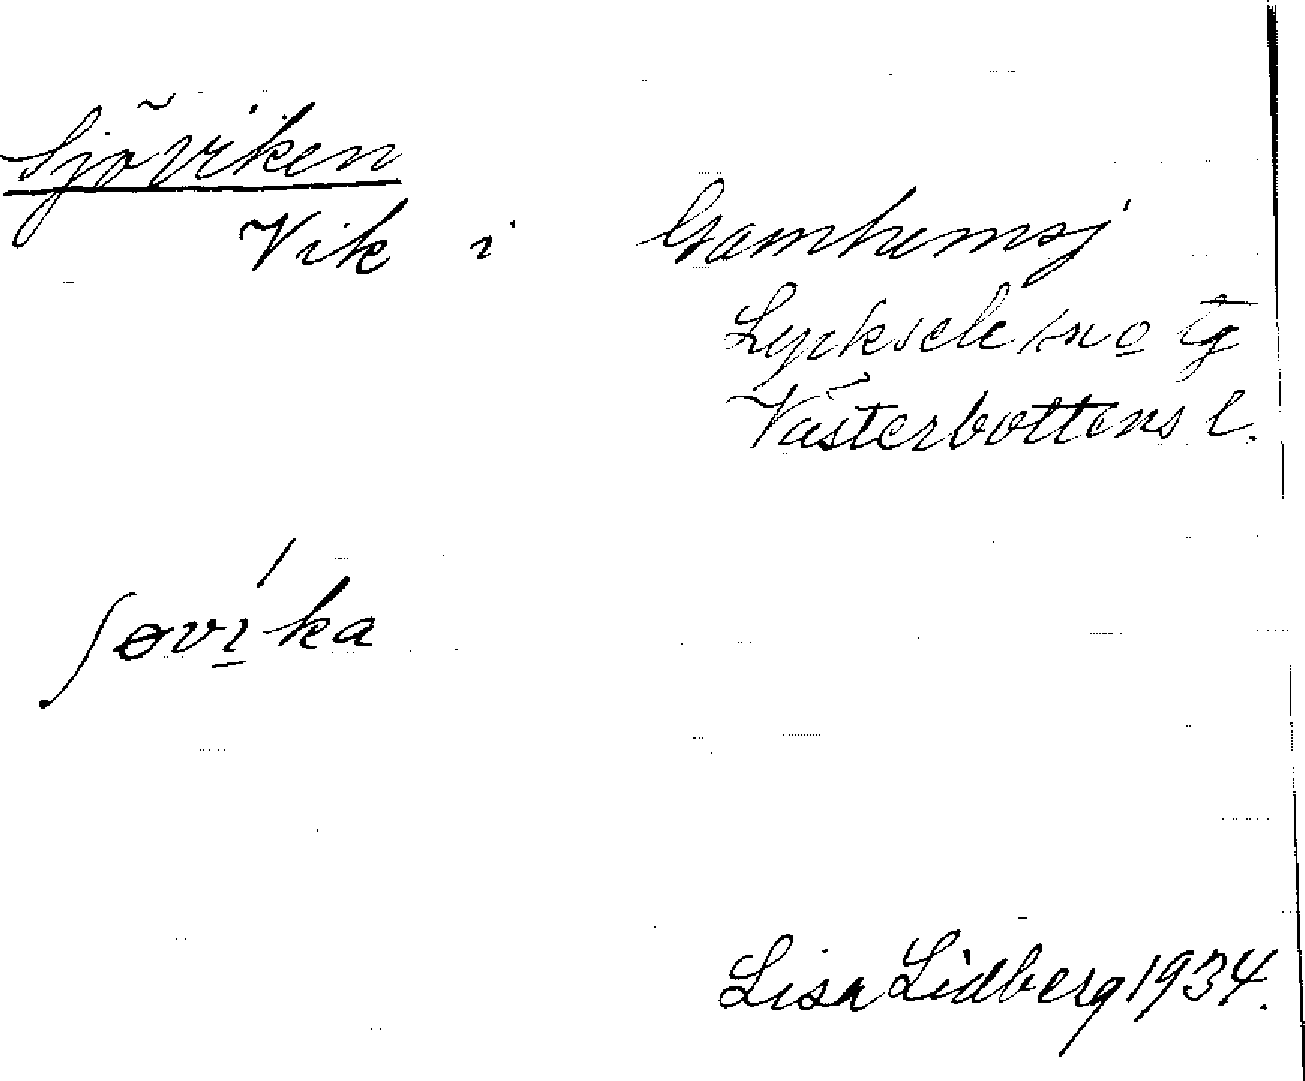 Sjöviken
Vik i Gamhemsj
Lycksele sn o tg
Västerbottens l.
ʃøvi̱´ka
Lisa Lidberg 1934.